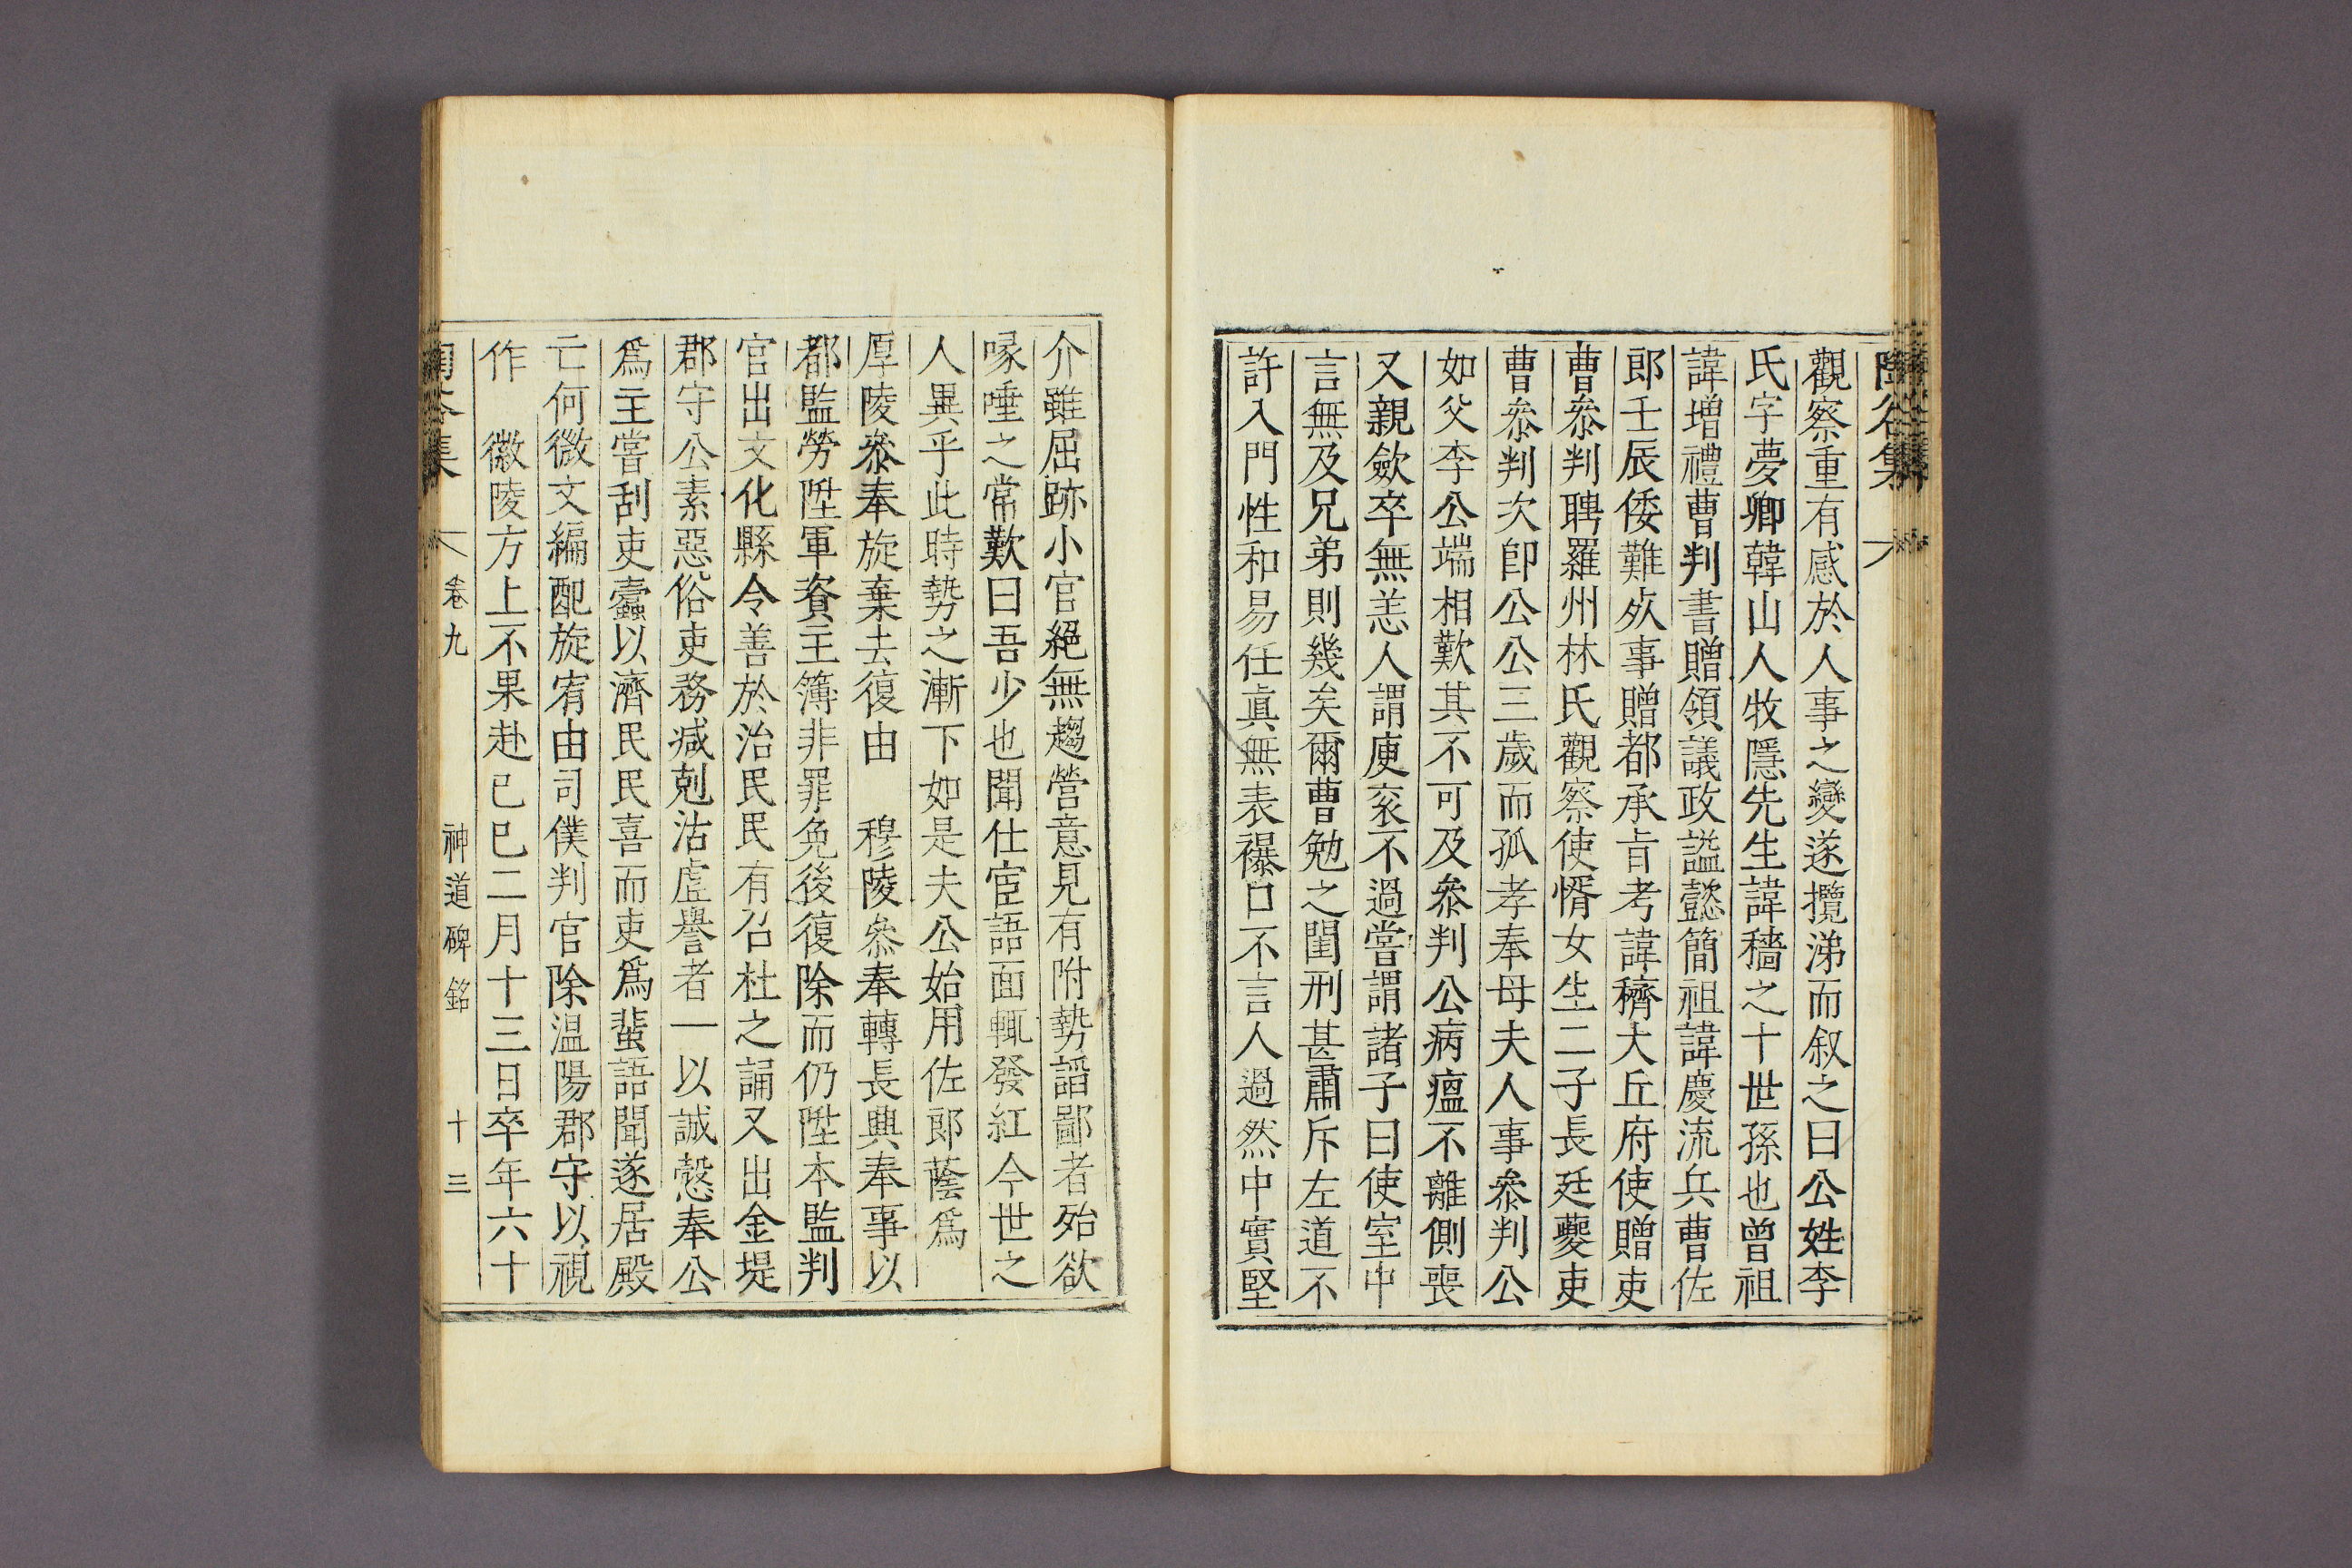 陶谷集
觀察重有感於人事之變遂攬涕而叙之曰公姓李
氏字夢卿韓山人牧隱先生諱穡之十世孫也曾祖
諱增禮曹判書贈領議政諡懿簡祖諱慶流兵曹佐
郎壬辰倭難死事贈都承旨考諱穧大丘府使贈吏
曹叅判聘羅州林氏觀察使㥠女生二子長廷夔吏
曹叅判次卽公公三歲而孤孝奉母夫人事叅判公
如父李公端相歎其不可及叅判公病瘟不離側喪
又親斂卒無恙人謂庾衮不過嘗謂諸子曰使室中
言無及兄弟則幾矣爾曹勉之閨刑甚肅斥左道不
許入門性和易任眞無表襮口不言人過然中實堅
介雖屈跡小官絕無趨營意見有附勢謟鄙者殆欲
喙唾之常歎曰吾少也聞仕宦語面輒發紅今世之
人異乎此時勢之漸下如是夫公始用佐郎蔭爲
厚陵叅奉旋棄去復由　穆陵叅奉轉長興奉事以
都監勞陞軍資主簿非罪免後復除而仍陞本監判
官出文化縣令善於治民民有召杜之誦又出金堤
郡守公素惡俗吏務减剋沽虛譽者一以誠慤奉公
爲主嘗刮吏蠹以濟民民喜而吏爲蜚語聞遂居殿
亡何微文編配旋宥由司僕判官除溫陽郡守以視
作　徽陵方上不果赴已巳二月十三日卒年六十
集　卷九　神道碑銘　十三